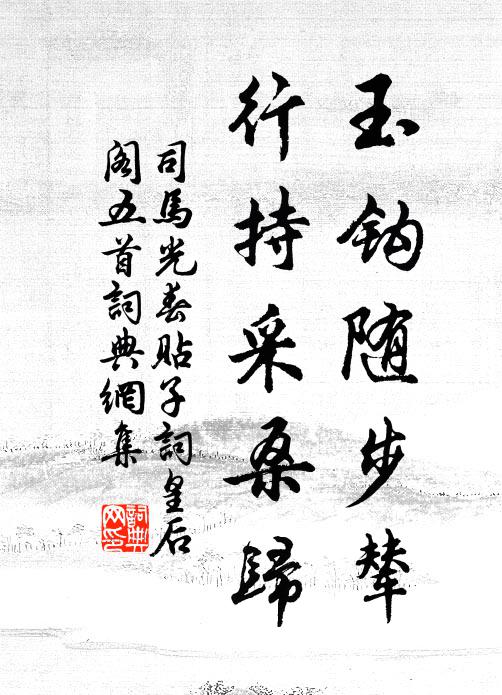 玉鈎随步輦
行持采桑歸
司馬光春貼子詞皇后
閣五首詞典網集
詞典
网印